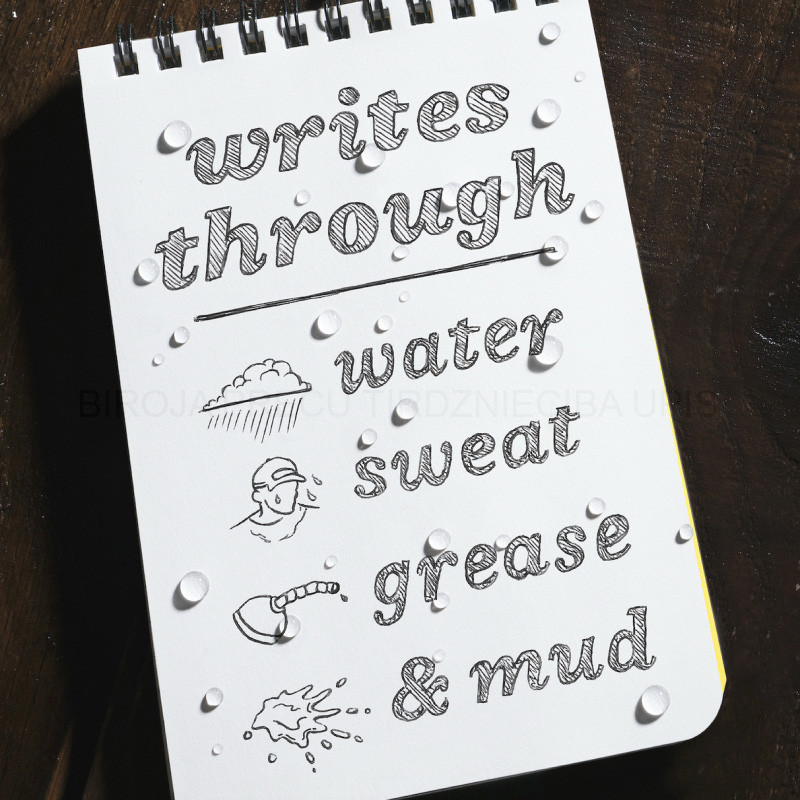 writes
through
water
BIROJA PREČU TIRDZNIECIBA UPIS
sweat
grease
& mud